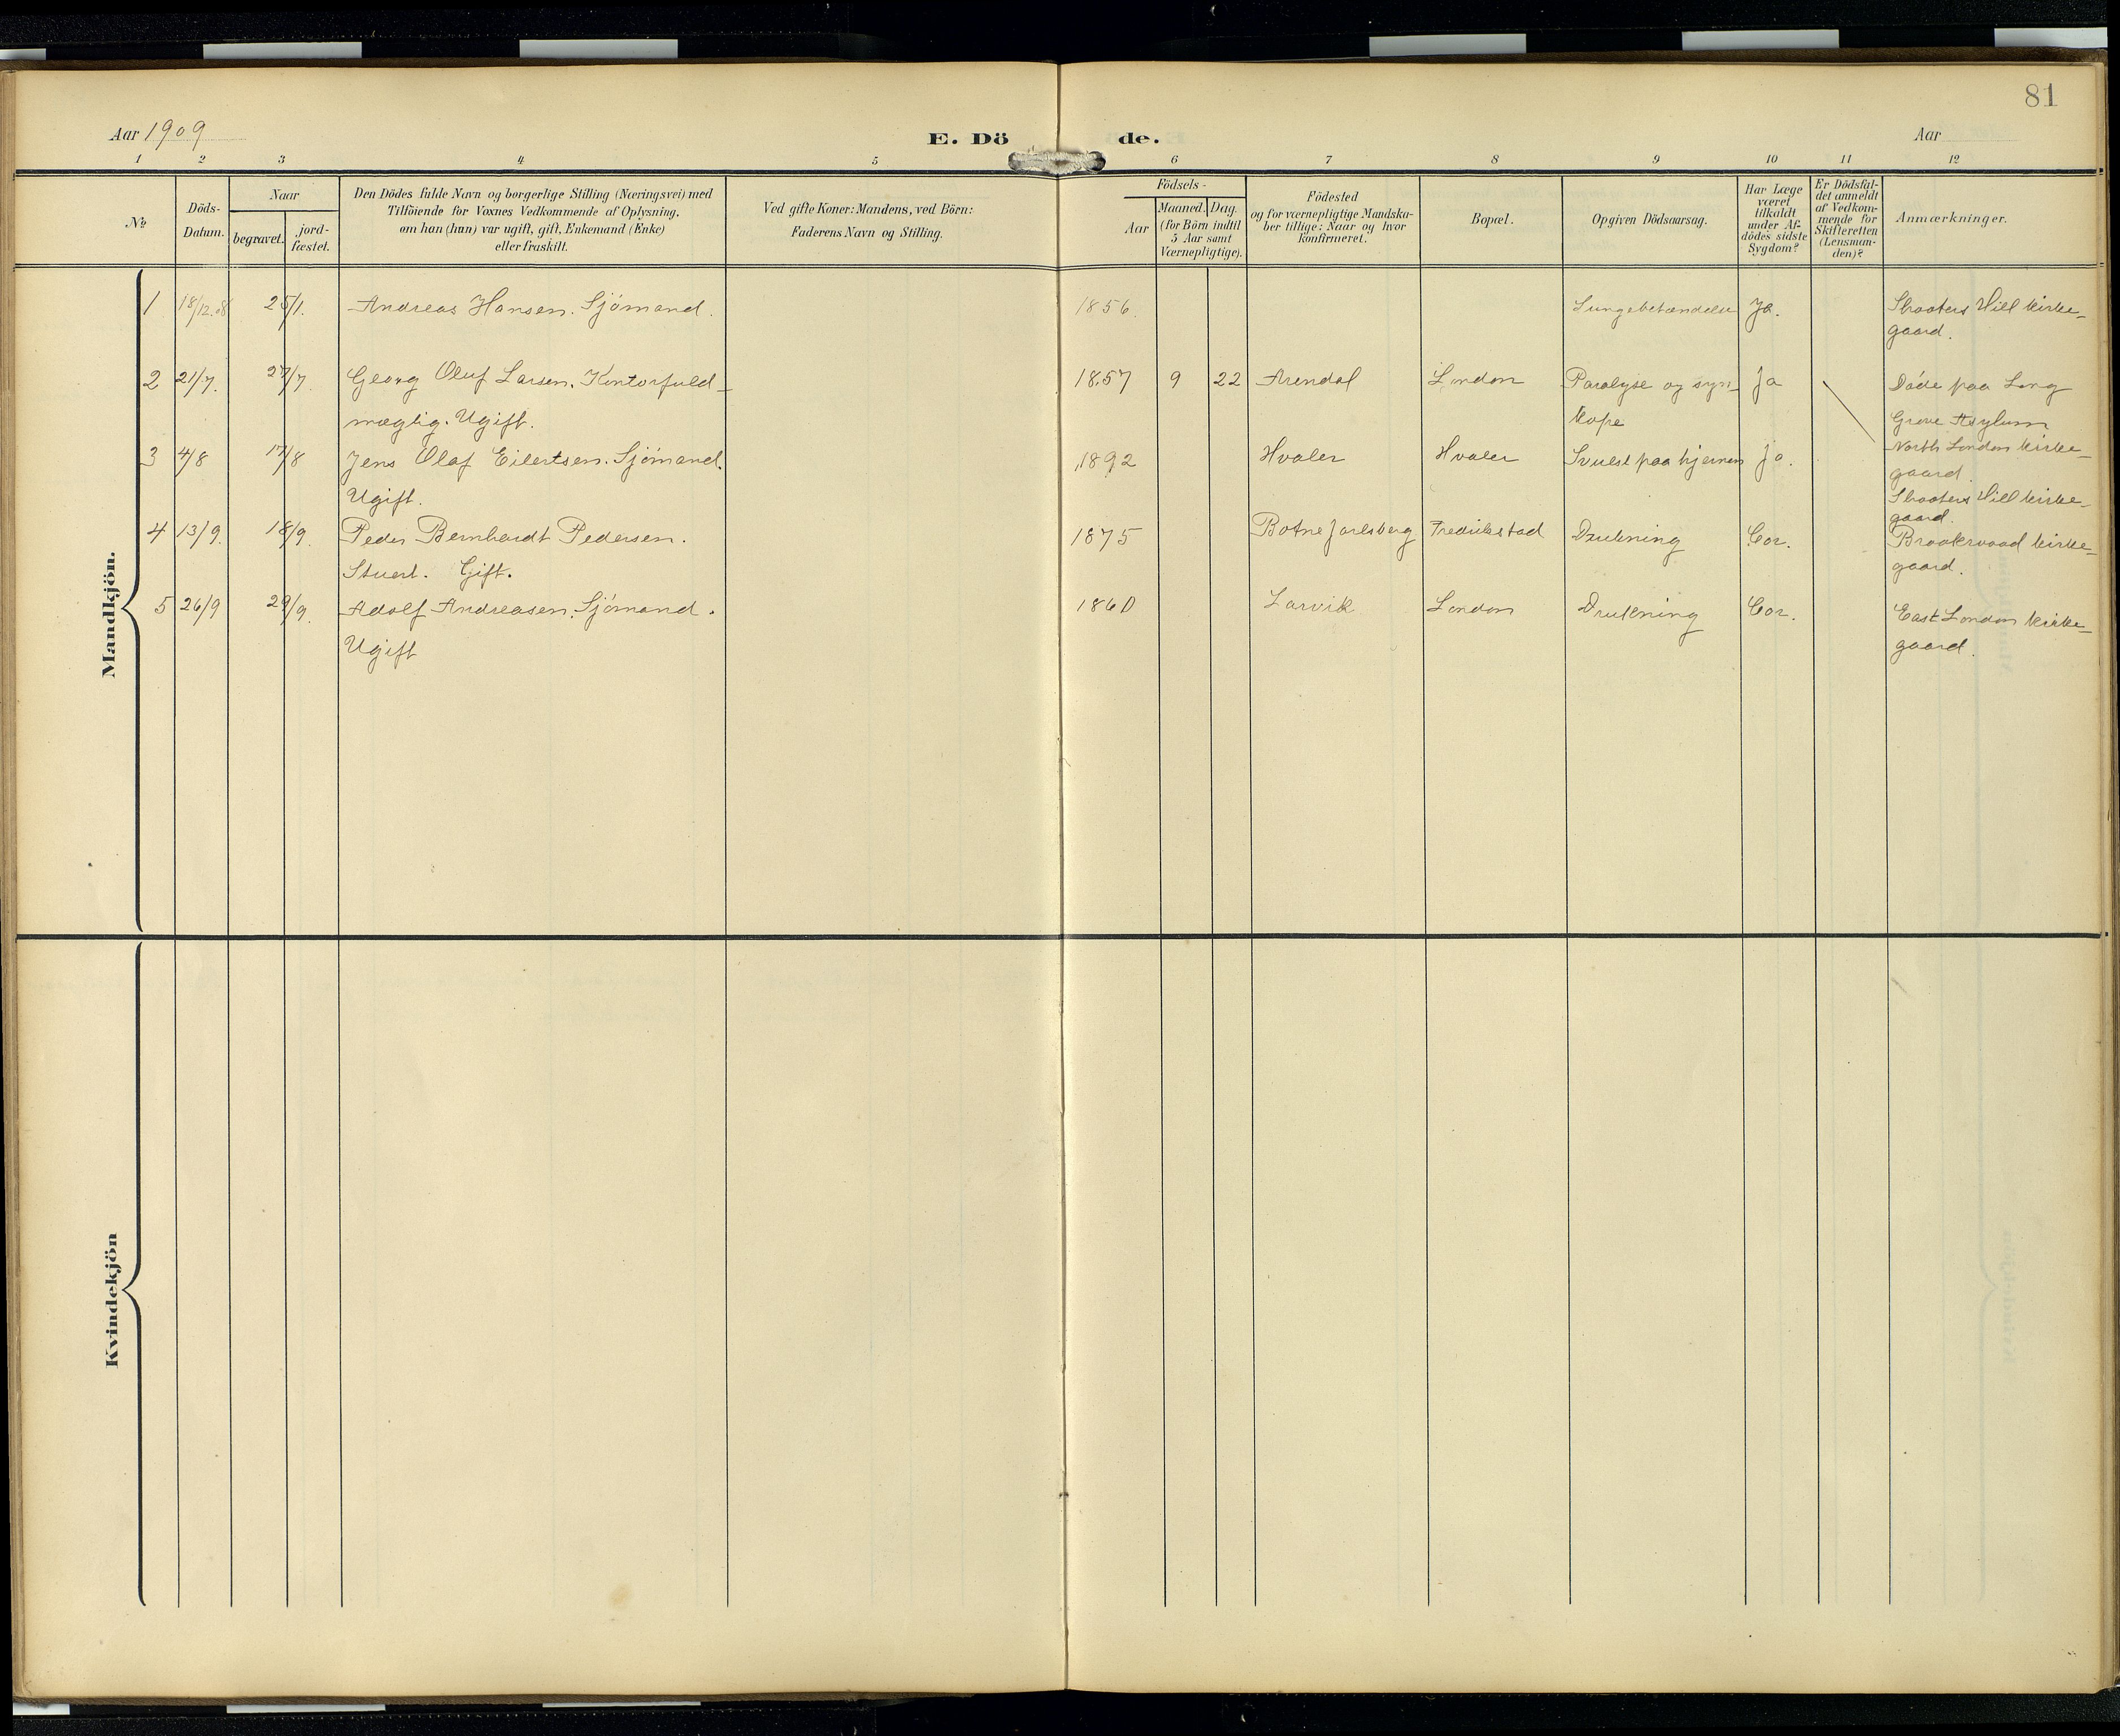 81
Aar 1909
E. Dö de.
Aar
1 2 3 4 5 6 7 8 9 10 11 12
No
Döds-
Datum.
Naar
begravet.
jord-
fæstet.
Den Dödes fulde Navn og borgerlige Stilling (Næringsvei) med
Tilföiende for Voxnes Vedkommende af Oplysning.
om han (hun) var ugift, gift, Enkemand (Enke)
eller fraskilt.
Ved gifte Koner: Mandens, ved Börn:
Faderens Navn og Stilling.
Födsels-
Aar
Maaned. Dag.
(for Börn indtil
5 Aar samt
Værnepligtige).
Födested
og for værnepligtige Mandska-
ber tillige: Naar og hvor
konfirmeret.
Bopæl.
Opgiven Dödsaarsag.
Har Læge
været
tilkaldt
under Af-
dödes sidste
Sygdom?
Er Dödsfal-
det anmeldt
af Vedkom-
mende for
Skifteretten
(Lensman-
den)?
Anmærkninger.
Mandkjön.
1 18/12.08 25/1. Andreas Hansen. Sjömand. 1856. Lungebetændelse Ja. Shooters Hill kirke-
gaard.
2 21/7. 27/7. Georg Oluf Larsen. Kontorfuld- 1857 9 22 Arendal London Paralyse og syn- Ja Döde paa Long
mægtig. Ugift. kope Grove Asylum
North London kirke-
gaard.
3 4/8 17/8 Jens Olaf Eilertsen. Sjömand. 1892 Hvaler Hvaler Svulst paa hjernen ja.
Ugift. Shooters Hill kirke-
gaard.
4 13/9. 18/9. Peder Bernhardt Pedersen. 1875 Botne Jarlsberg Fredrikstad Drukning Cor. Brookwood kirke-
Stuert. Gift. gaard.
5 26/9 29/9. Adolf Andreasen. Sjömand. 1860 Larvik London Drukning Cor. East London kirke-
Ugift gaard.
Kvindekjön